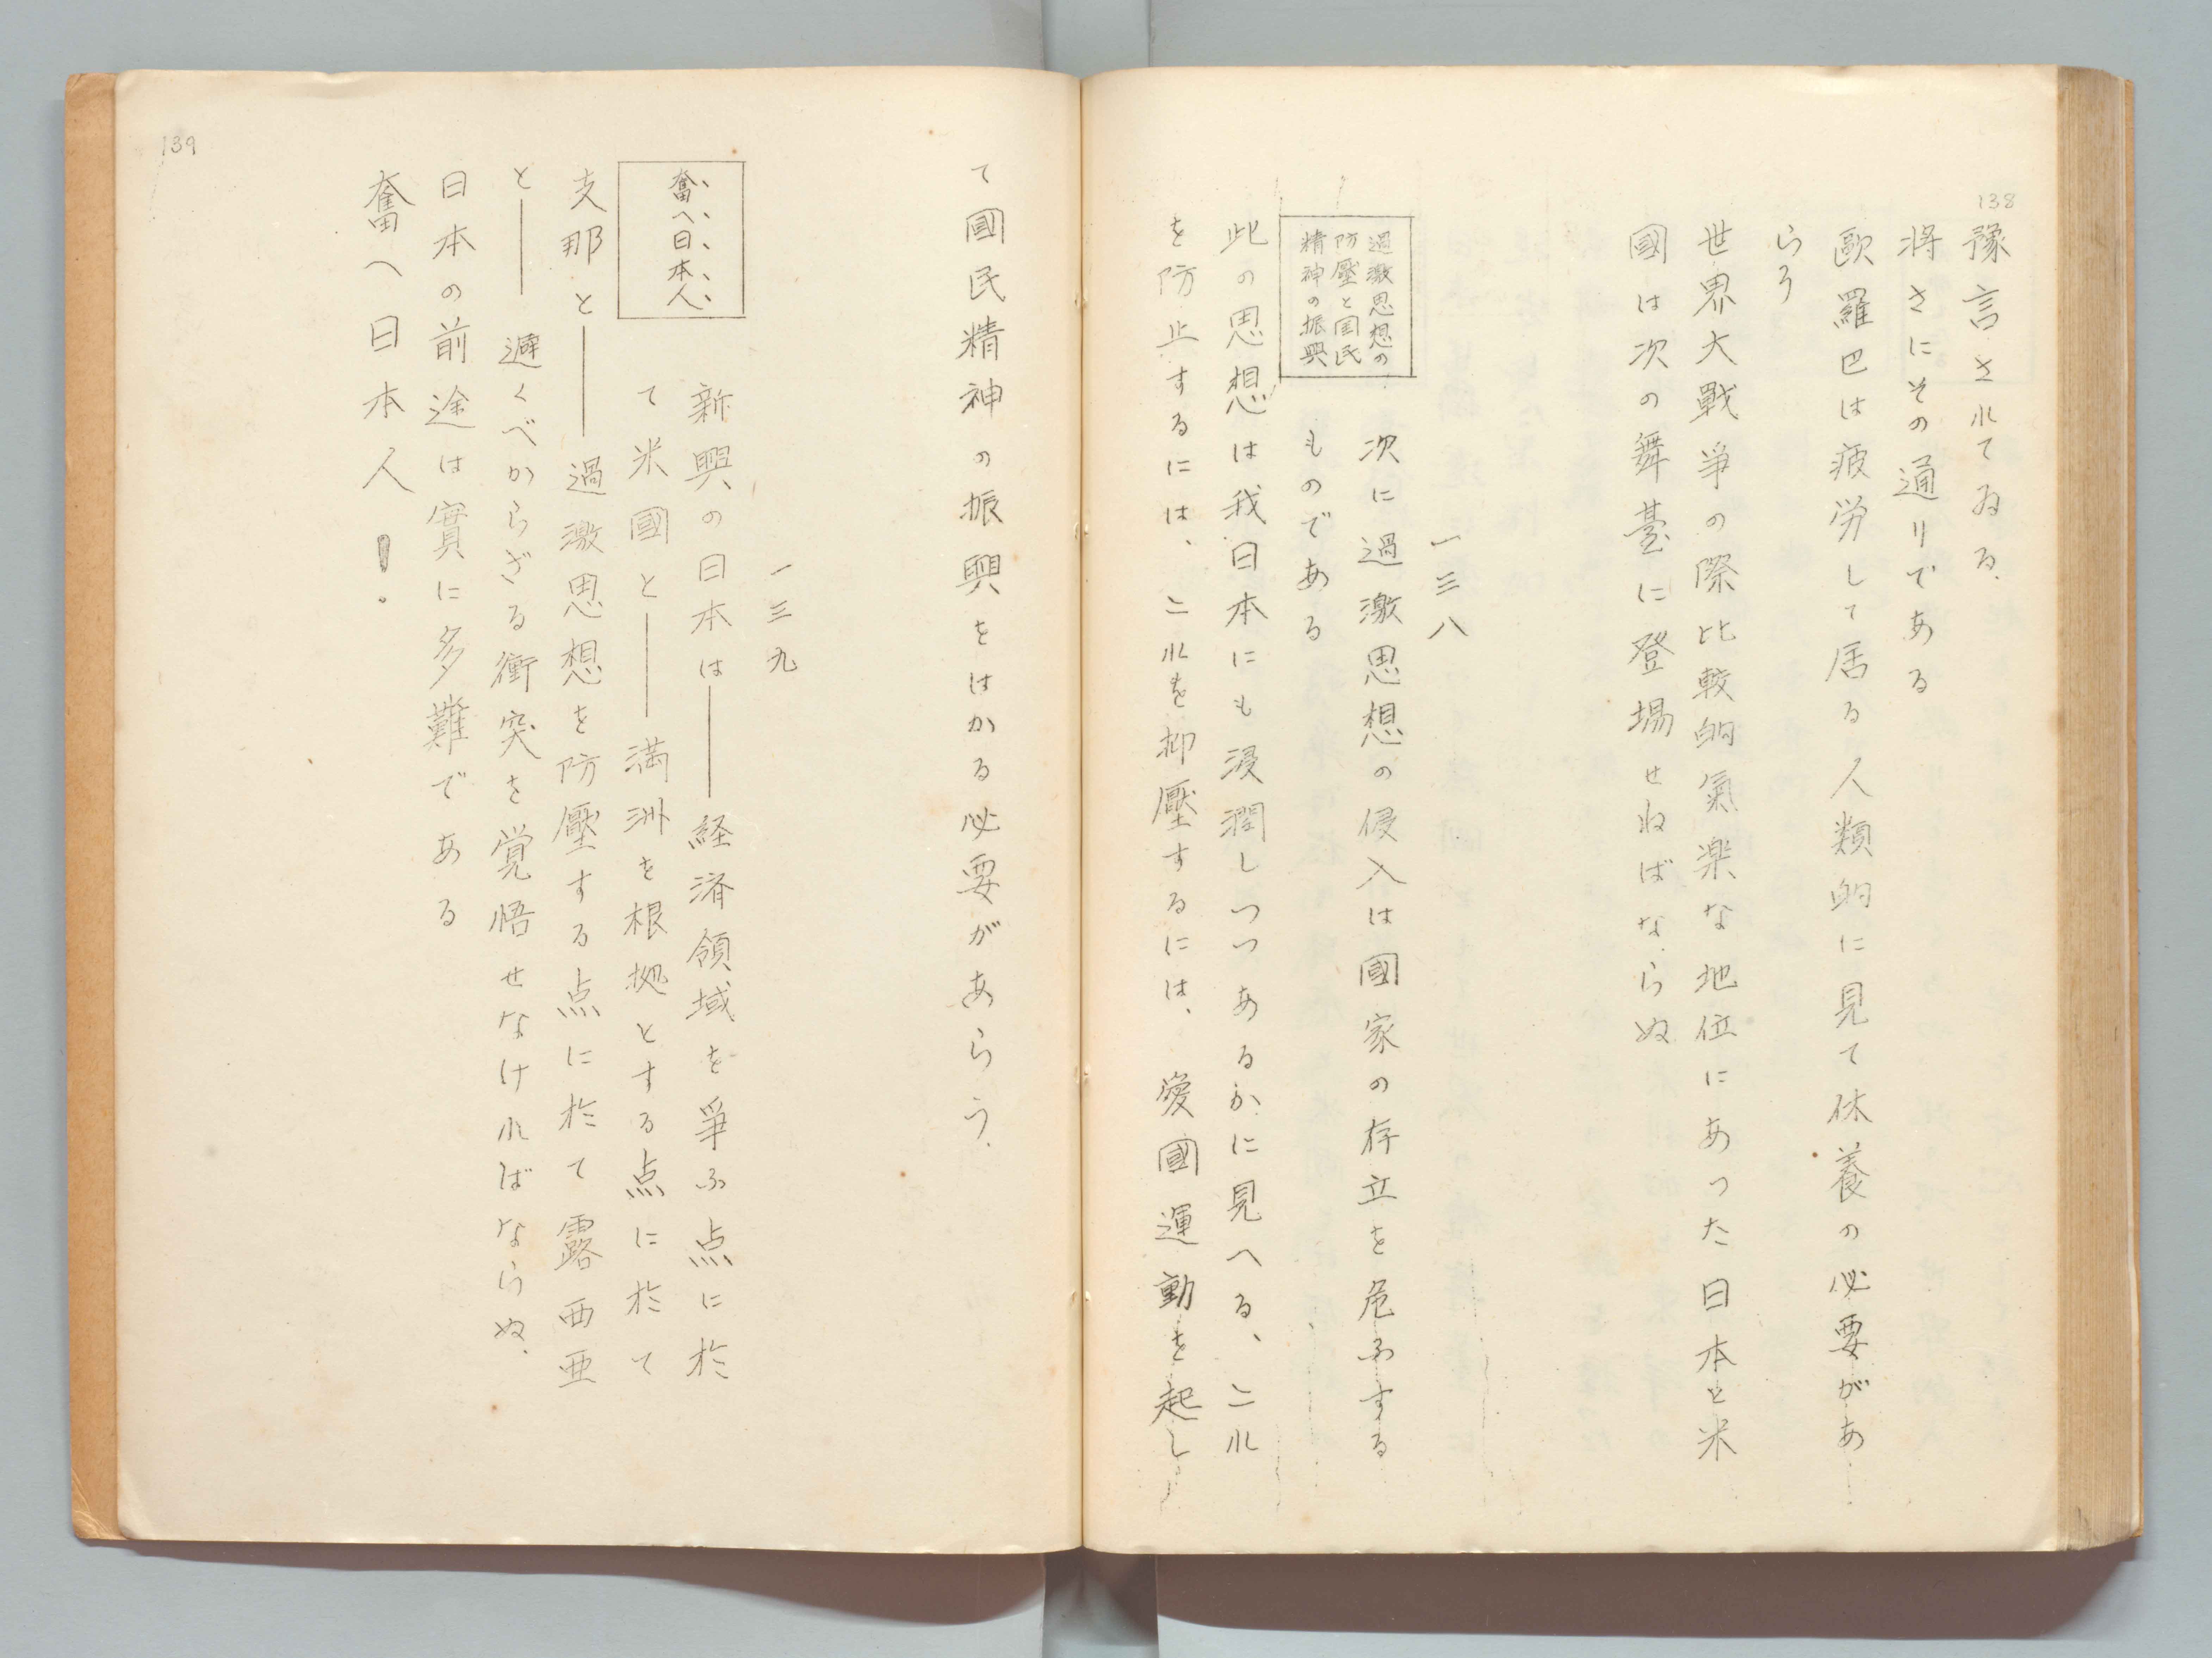 138
豫言されてゐる.
将さにその通りである
歐羅巴は疲労して居る人類的に見て休養の必要があ
らう
世界大戰爭の際比較的氣楽な地位にあった日本と米
國は次の舞臺に登場せねばならぬ
一三八
過激思想の
防壓と国民
精神の振興
次に過激思想の侵入は國家の存立を危ふする
ものである
此の思想は我日本にも浸潤しつつあるかに見へる、これ
を防止するには、これを抑壓するには、愛國運動を起し
て國民精神の振興をはかる必要があらう.
一三九
奮へ日本人
新興の日本は――経済領域を爭ふ点に於
て米國と――満洲を根拠とする点に於て
支那と――過激思想を防壓する点に於て露西亜
と――避くべからざる衝突を覚悟せなければならぬ.
日本の前途は實に多難である
奮へ日本人!
139